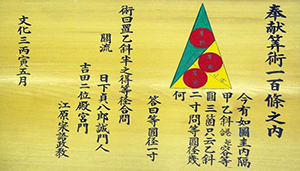 奉献算術一百條之内
今有如圖圭内隔
甲乙斜
圓三箇只云乙斜
二寸問等圓徑幾
何
答曰等圓徑一寸
術曰置乙斜半之得等徑合問
關流
日下貞八郎誠門人
吉田二位殿宮門
江原
文化三丙寅五月